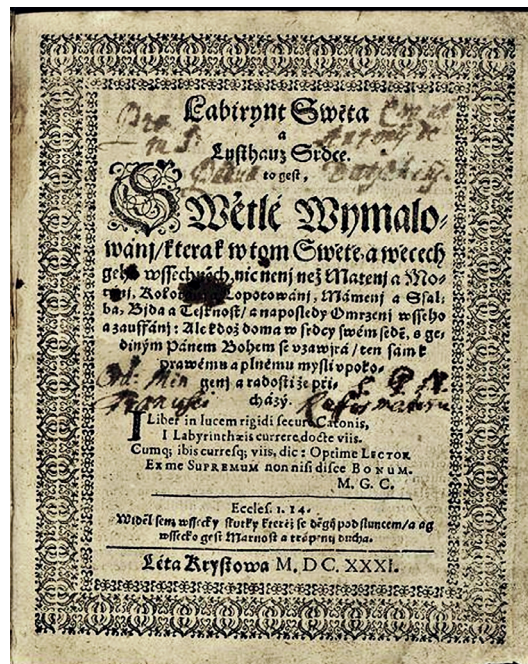 Labirynt Swěta
a
Lusthauz Srdce.
to gest,
SWětlé Wymalo-
wánj / kterak w tom Swětě, a wěcech
geho wssechněch, nic nenj než Matenj a Mo-
Kolotánj a Lopotowánj, Mámenj a Ssal-
ba, Bjda a Tesknost / a naposledy Omrzenj wsseho
a zauffánj: Ale kdož doma w srdcy swém sedě, s ge-
diným Pánem Bohem se vzawjrá / ten sám k
prawému a plnému mysli vpoko-
genj a radosti že při-
cházý.
I Liber in lucem rigidi secure Catonis,
I Labyrinthæis currere, docte viis.
Cumq; ibis curresq; viis, dic: Optime LECTOR
Ex me SUPREMUM non nisi disce BONUM.
M. G. C.
Eccles. 1. 14.
Widěl sem wssecky skutky kteřéž se děgj pod sluncem / a ag
wssecko gest Marnost a trápenj ducha.
Léta Krystowa M. DC. XXXI.